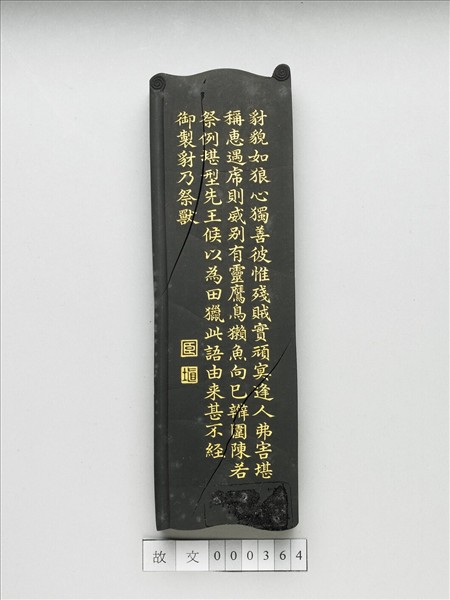 豺貌如狼心獨善彼惟殘賊實頑冥逢人弗害堪
稱惠遇虎則威别有靈鷹鳥獺魚向已辨圍陳若
祭例堪型先王候以為田獵此語由来甚不經
御製豺乃祭獸
臣
故文000364